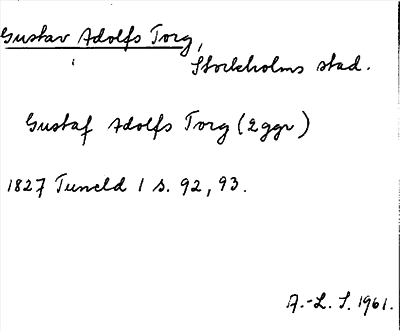 Gustav Adolfs Torg,
Stockholms stad.
Gustaf Adolfs Torg (2ggr)
1827 Tuneld 1 s. 92, 93.
A.-L. S. 1961.